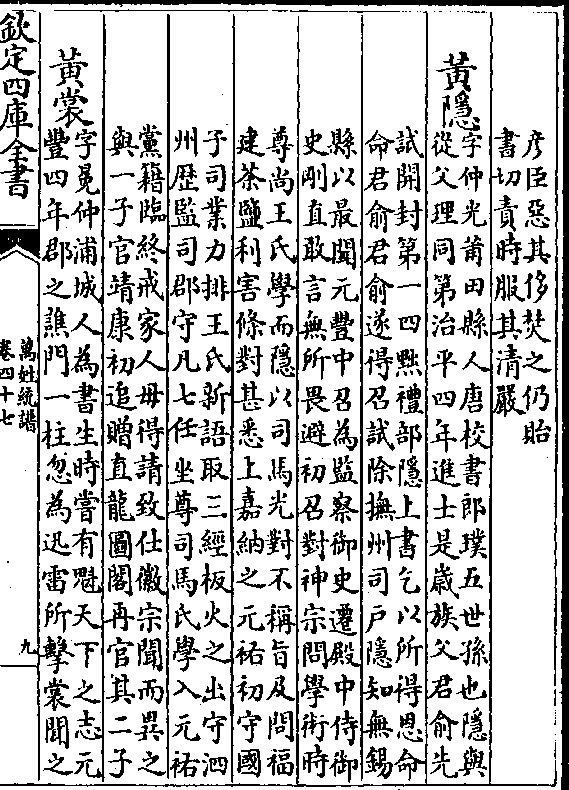 彥臣惡其侈焚之仍貽
書切責時服其清嚴
黃隱
字仲光莆田縣人唐校書郎璞五世孫也隱與
從父理同第治平四年進士是嵗族父君俞先
試開封第一四黜禮部隱上書乞以所得恩命
命君俞君俞遂得召試除撫州司戸隱知無錫
縣以最聞元豐中召為監察御史遷殿中侍御
史剛直敢言無所畏避初召對神宗問學術時
尊尚王氏學而隱以司馬光對不稱旨及問福
建茶鹽利害條對甚悉上嘉納之元祐初守國
子司業力排王氏新語取三經板火之出守泗
州歴監司郡守凡七任坐尊司馬氏學入元祐
黨籍臨終戒家人毋得請致仕徽宗聞而異之
與一子官靖康初追贈直龍圖閣再官其二子
黃裳
字冕仲浦城人為書生時嘗有魁天下之志元
豐四年郡之譙門一柱忽為迅雷所擊裳聞之
欽定四庫全書
萬姓統譜
卷四十七
九